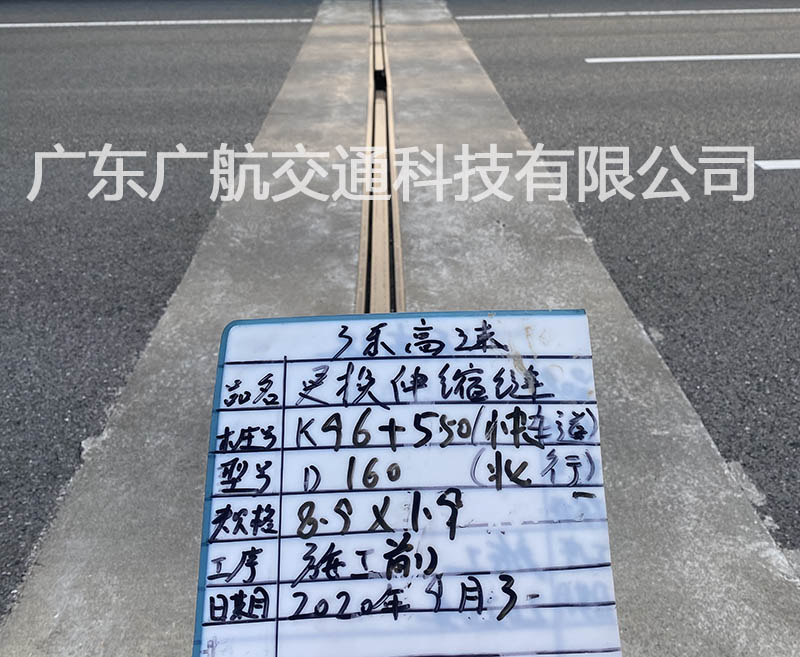 广东广航交通科技有限公司
乐高速
品名 更换伸缩缝
桩号 K46+550(快车道)
型号 D 160 (北行)
规格 8.9X1.9
工序 施工前
日期 2020年9月3